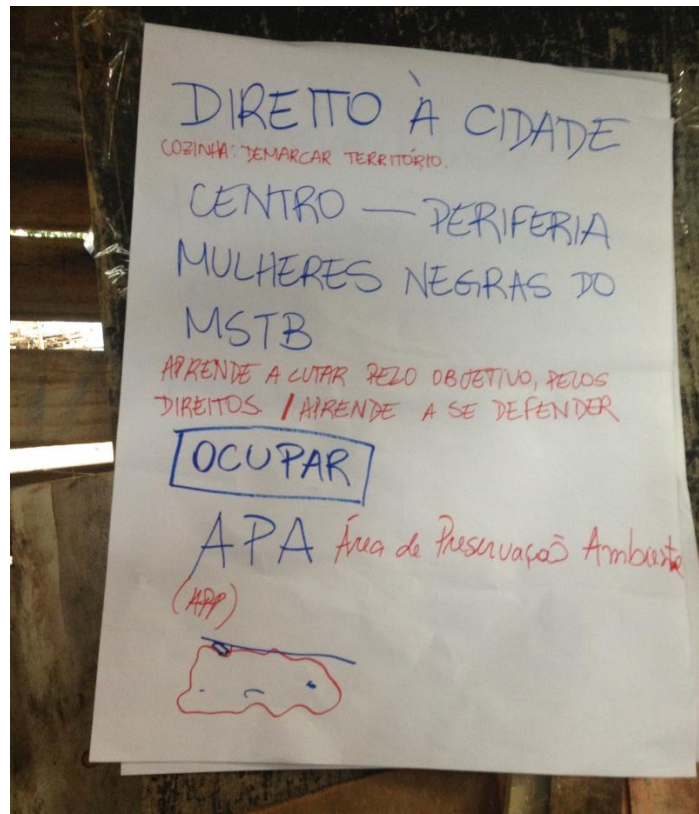 DIREITO À CIDADE
COZINHA: DEMARCAR TERRITÓRIO.
CENTRO — PERIFERIA
MULHERES NEGRAS DO
MSTB
APRENDE A LUTAR PELO OBJETIVO, PELOS
DIREITOS / APRENDE A SE DEFENDER
OCUPAR
APA Área de Preservação Ambiente
(APP)